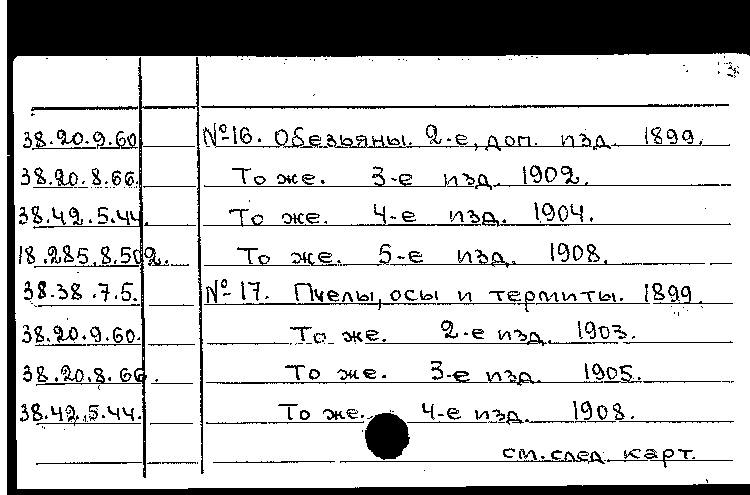 38.20.9.60. №16. Обезьяны. 2-е, доп. изд. 1899.
38.20.8.66. То же. 3-е изд. 1902.
38.42.5.44. То же. 4-е изд. 1904.
18.285.8.502. То же. 5-е изд. 1908.
38.38.7.5. №17. Пчелы, осы и термиты. 1899.
38.20.9.60. То же. 2-е изд. 1903.
38.20.8.66. То же. 3-е изд. 1905.
38.42.5.44. То же. 4-е изд. 1908.
см. след. карт.